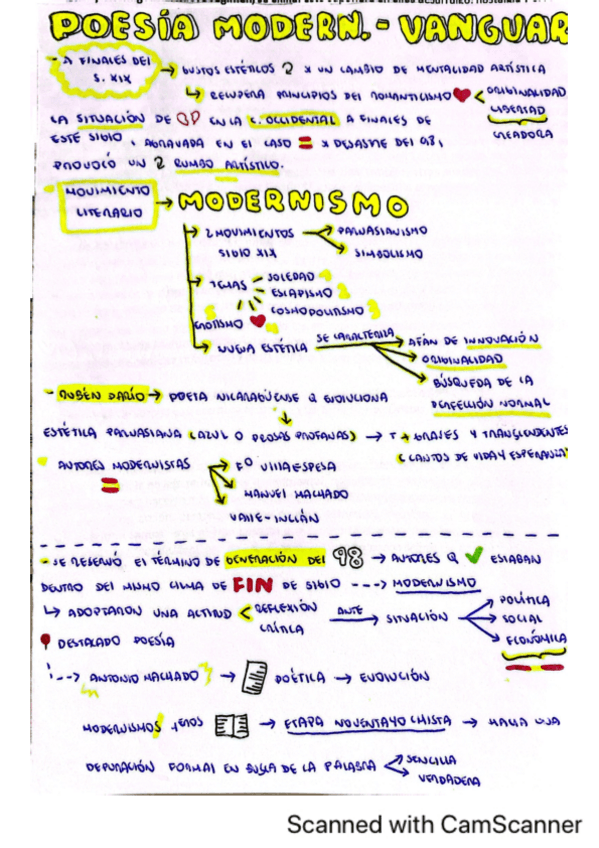 POESÍA MODERN. - VANGUAR
- A FINALES DEL S. XIX → GUSTOS ESTÉTICOS 2 X UN CAMBIO DE MENTALIDAD ARTÍSTICA
↳ RECUPERA PRINCIPIOS DEL ROMANTICISMO < ORIGINALIDAD
LIBERTAD
CREADORA
LA SITUACIÓN DE EN LA C. OCCIDENTAL A FINALES DE
ESTE SIGLO, AGRAVADA EN EL CASO X DESASTRE DEL 98,
PROVOCÓ UN 2 RUMBO ARTÍSTICO.
MOVIMIENTO LITERARIO → MODERNISMO
2 MOVIMIENTOS SIGLO XIX → PARNASIANISMO
SIMBOLISMO
TEMAS SOLEDAD 1
ESCAPISMO 2
COSMOPOLITISMO 3
EROTISMO
NUEVA ESTÉTICA SE CARACTERIZA AFÁN DE INNOVACIÓN
ORIGINALIDAD
BÚSQUEDA DE LA
PERFECCIÓN NORMAL
- RUBÉN DARÍO → POETA NICARAGÜENSE Q EVOLUCIONA
↓
ESTÉTICA PARNASIANA (AZUL O PROSAS PROFANAS) → T + GRAVES Y TRANSCENDENTES
(CANTOS DE VIDA Y ESPERANZA)
AUTORES MODERNISTAS Fº VILLAESPESA
MANUEL MACHADO
VALLE-INCLÁN
- SE RESERVÓ EL TÉRMINO DE GENERACIÓN DEL 98 → AUTORES Q ESTABAN
DENTRO DEL MISMO CLIMA DE FIN DE SIGLO ---> MODERNISMO
↳ ADOPTARON UNA ACTITUD < REFLEXIÓN CRÍTICA ANTE → SITUACIÓN POLÍTICA
SOCIAL
ECONÓMICA
DESTACADO POESÍA
---> ANTONIO MACHADO → POÉTICA → EVOLUCIÓN
MODERNISMOS → ETAPA NOVENTAYOCHISTA → HACIA UNA
DEPURACIÓN FORMAL EN BUSCA DE LA PALABRA SENCILLA
VERDADERA
Scanned with CamScanner